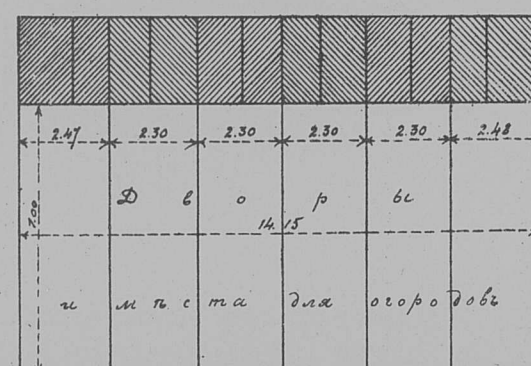 2.47 2.30 2.30 2.30 2.30 2.48
Дворы
7.00
14.15
и мѣста для огородовъ